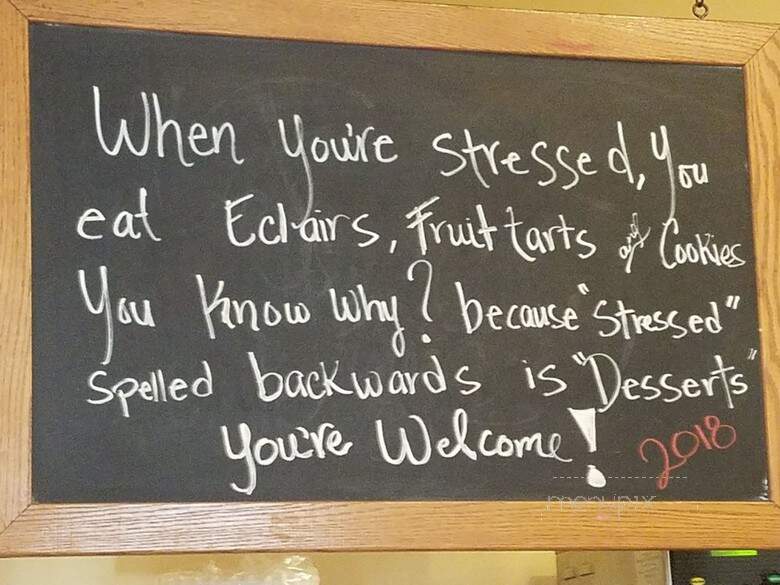 When You're stressed, You
eat Eclairs, Fruit tarts and Cookies
You Know Why? because "Stressed"
spelled backwards is "Desserts"
you're Welcome! 2018
menupix